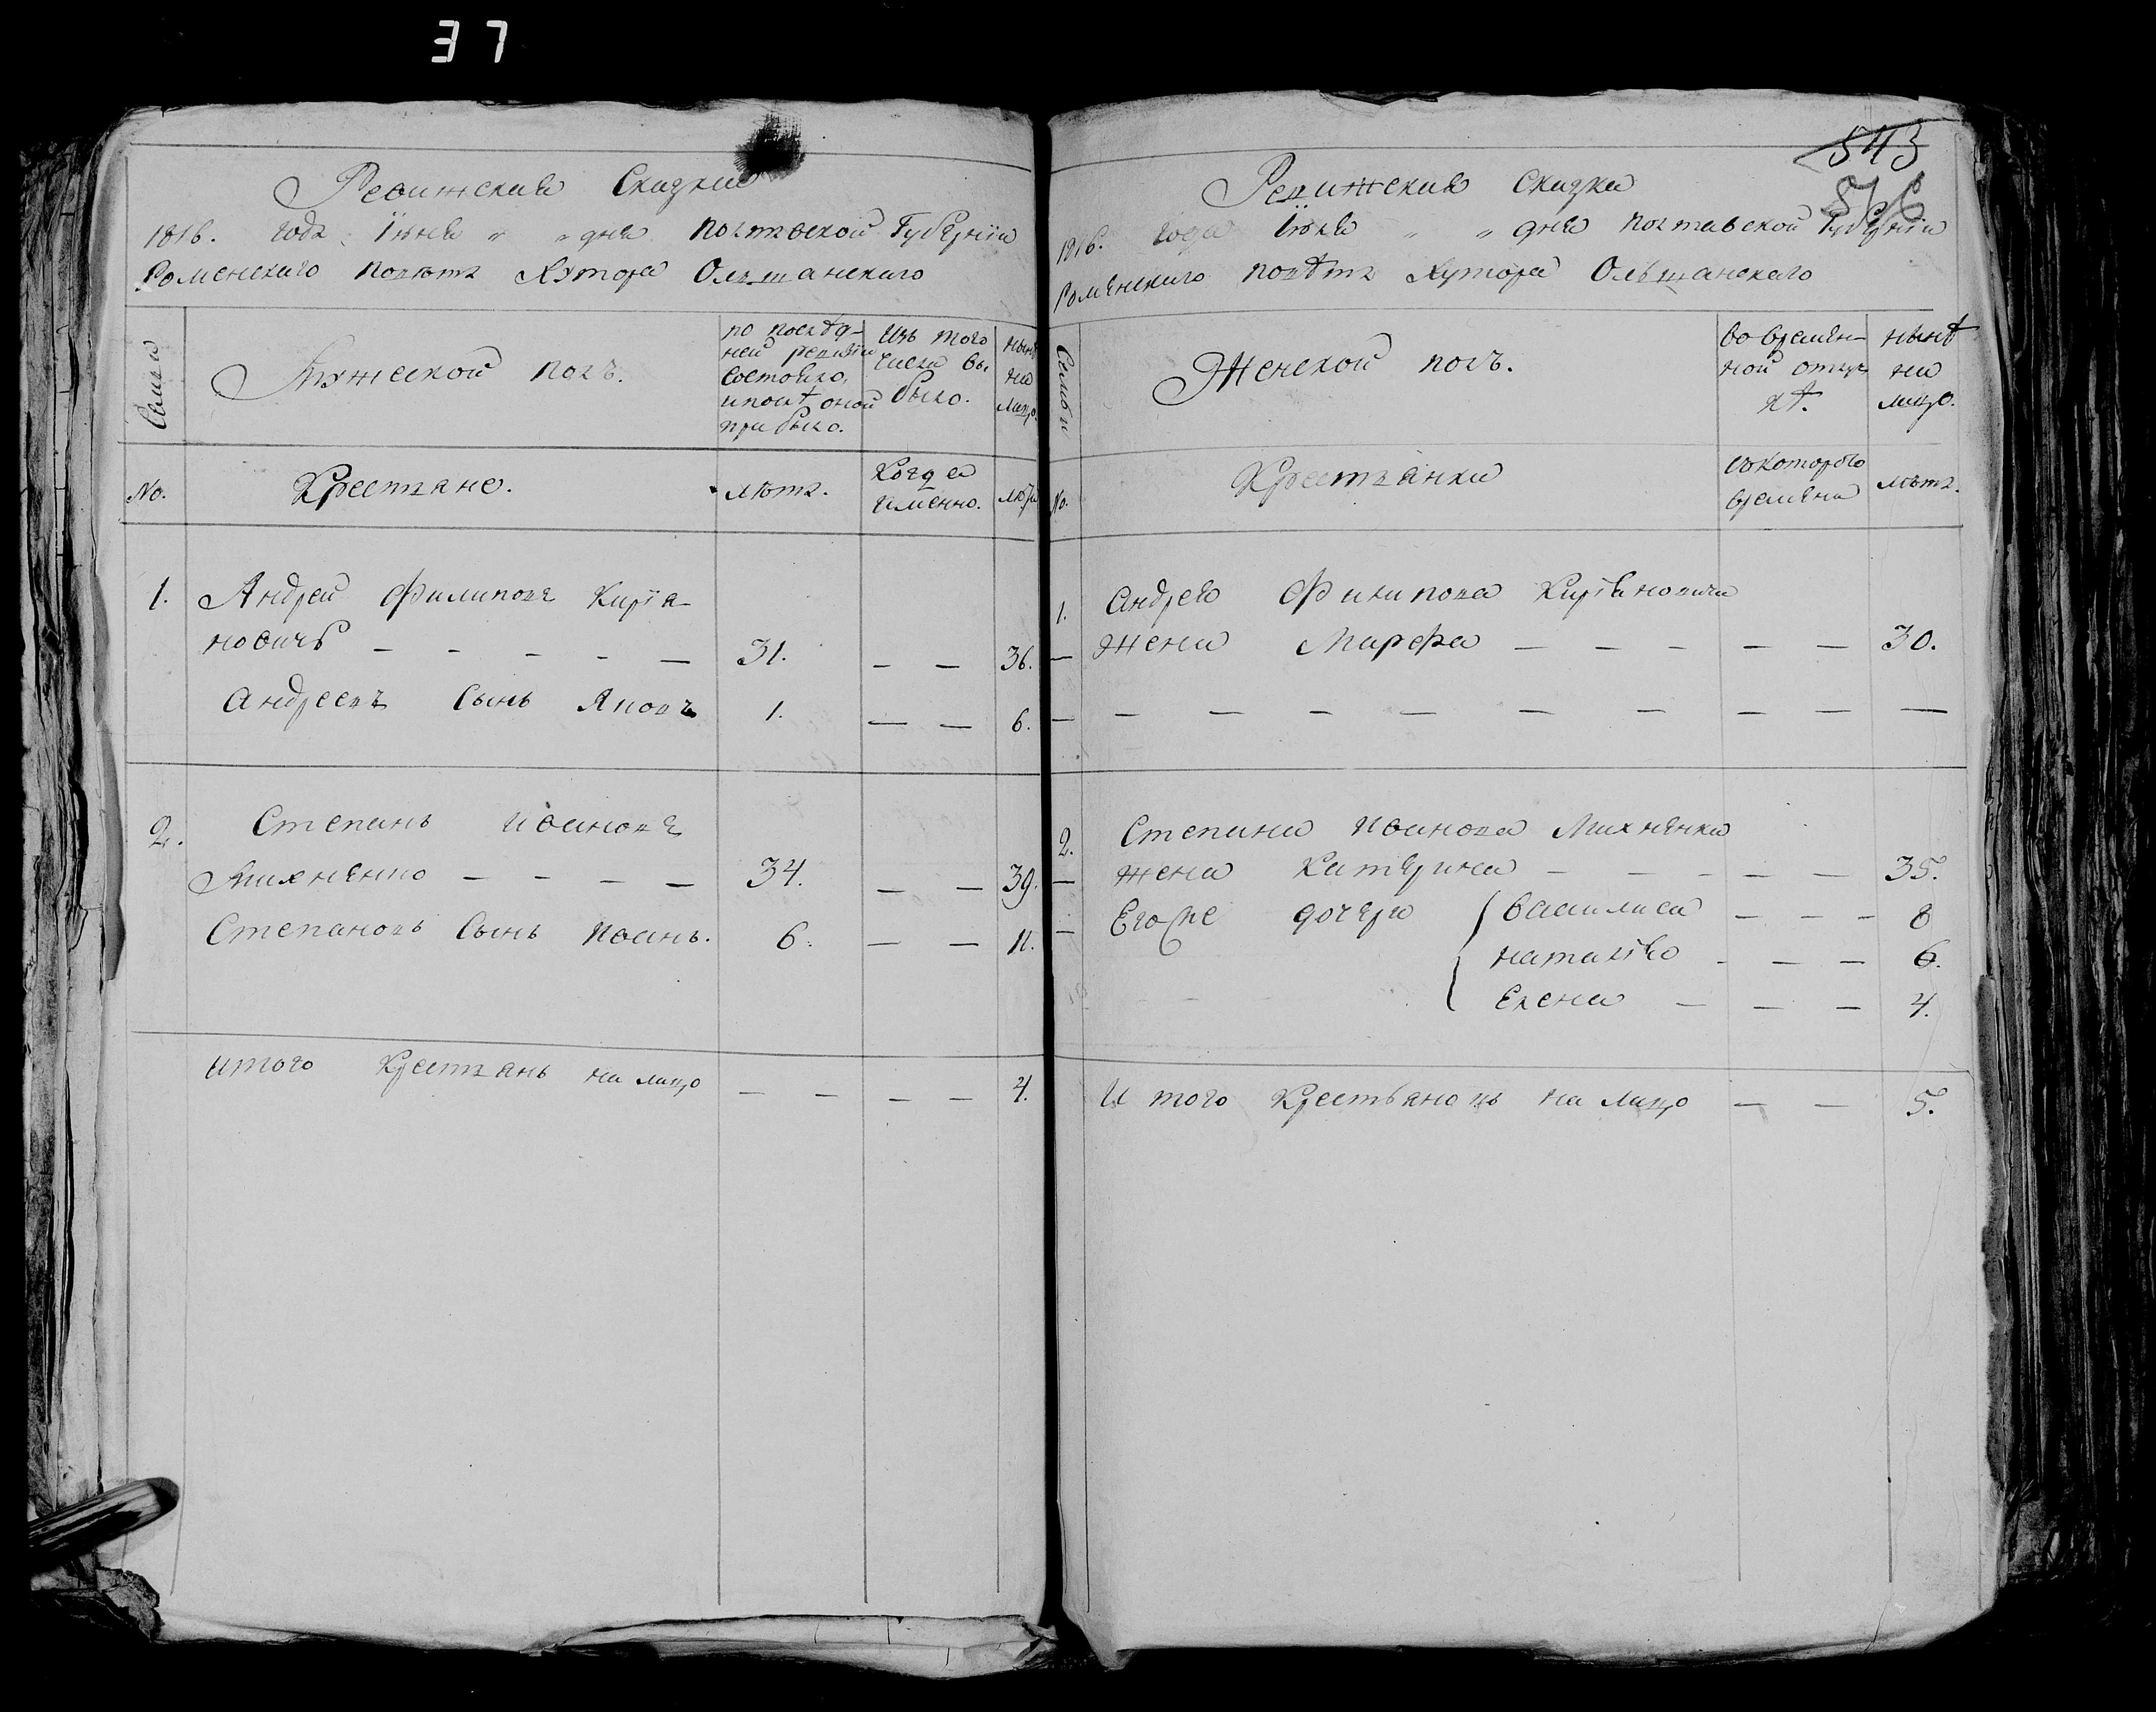 37
Ревижская Сказка
1816. годъ Іюня " " дня Полтвской Губерніи
Роменскаго Повѣтъ Хутора Ольшанскаго
Семьи
Мужеской полъ.
по послѣд-
ней ревизіи
состояло,
и послѣ оной
прибыло.
Изъ того
числа вы,
было.
нынѣ
на
лицо.
No.
Крестяне.
лѣтъ.
Когда
именно.
лѣта
1. Андрей Филиповъ Киріа-
новичь — — — — — 31. — — 36.
Андреевъ Сынъ Яковъ 1. — — 6.
2. Степанъ Ивановъ
Михненко — — — — 34. — — 39.
Степановъ Сынъ Иванъ. 6. — — 11.
итого Крестянъ на лицо — — — — 4.
543
576
Ревижская Сказка
1816. года Іюня " " дня Полтавской Губерніи
Роменскаго повѣтъ Хутора Ольшанскаго
Семьи
Женской полъ.
во времен-
ной отлуч
кѣ.
нынѣ
на
лицо.
No.
Крестянки
съ котораго
времени
лѣтъ.
1. Андрея Филипова Киріановича
— Жена Марфа — — — — — 30.
— — — — — — — — — —
2. Степана Иванова Михненка
— жена Катерина — — — — — 35.
— Его же дочери Василиса — — — 8
наталія — — — 6.
Елена — — — 4.
И того Крестьянокъ на лицо — — 5.